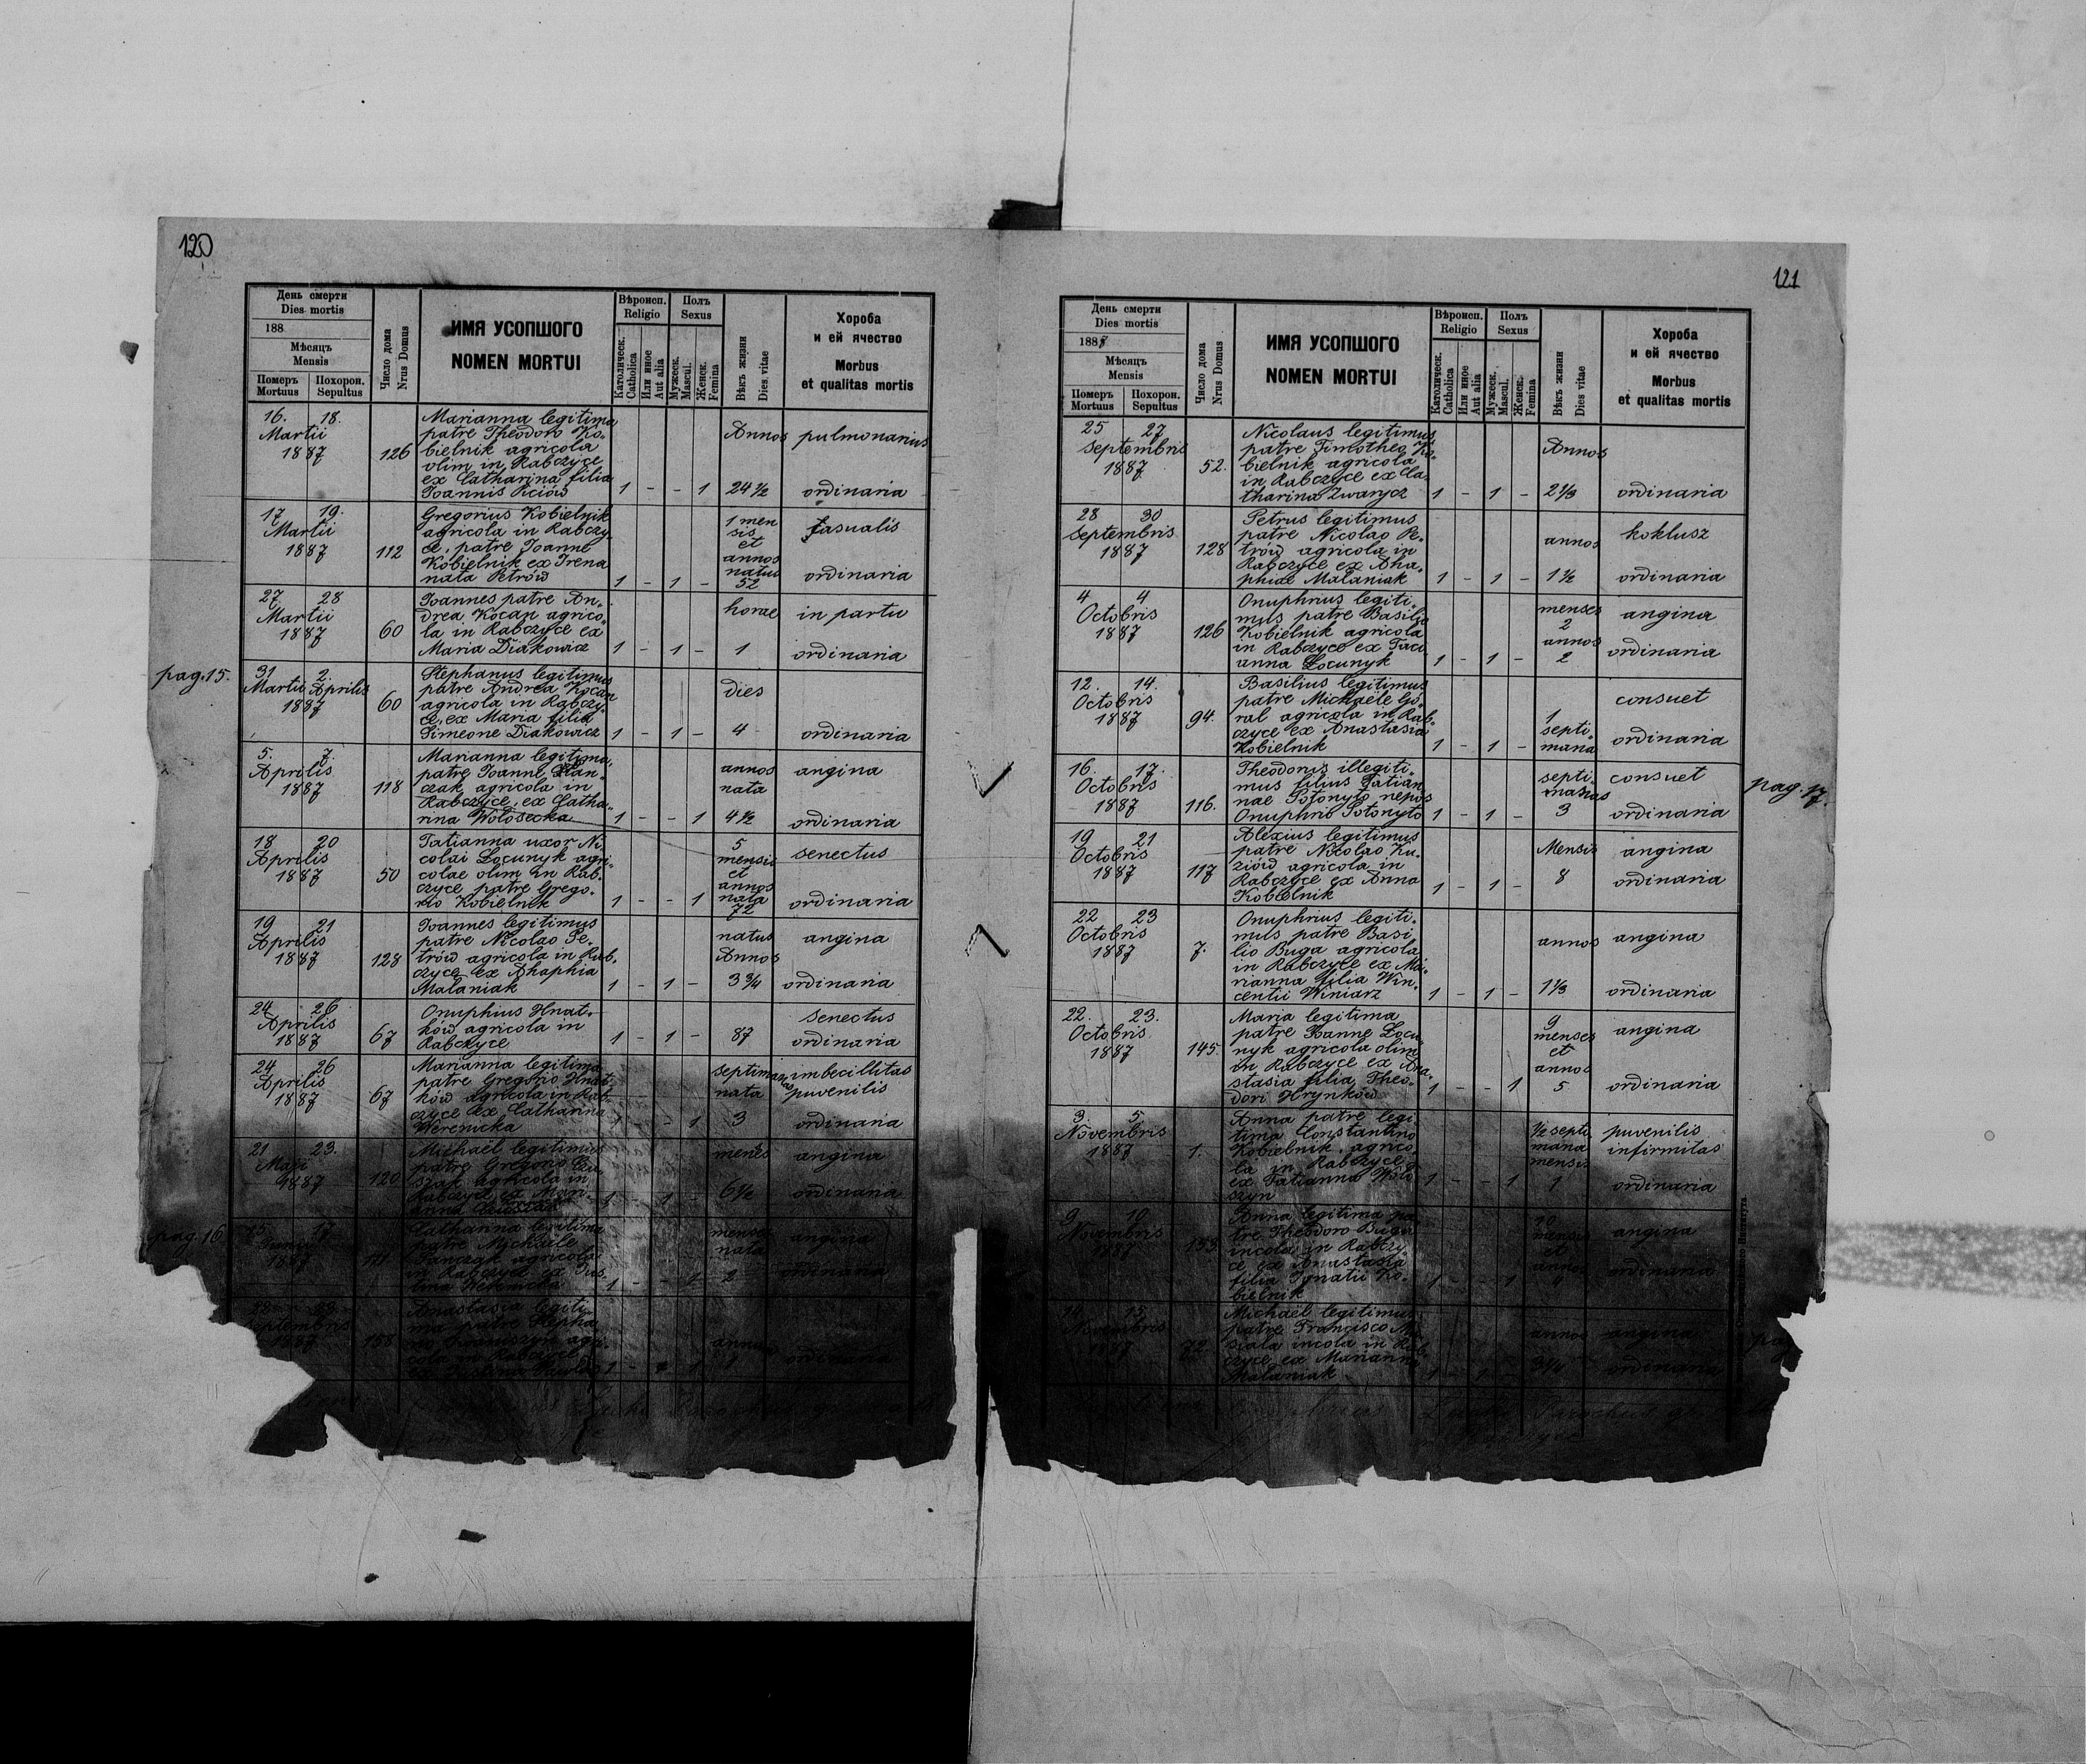 120
День смерти
Dies mortis
188
Мѣсяцъ
Mensis
Померъ
Mortuus
Похорон.
Sepultus
Число дома
Nrus Domus
ИМЯ УСОПШОГО
NOMEN MORTUI
Вѣроисп.
Religio
Католическ.
Catholica
Или иное
Aut alia
Полъ
Sexus
Мужеск.
Mascul.
Женск.
Femina
Вѣкъ жизни
Dies vitae
Хороба
и ей ячество
Morbus
et qualitas mortis
16. 18.
Martii
1887
126
Marianna legitima
patre Theodoro Ko-
bielnik agricola
olim in Rabczyce
ex Catharina filia
Joannis Piciów
1 - - 1
Annos
24 1/2
pulmonarius
ordinaria
17 19.
Martii
1887
112
Gregorius Kobielnik
agricola in Rabczy-
ce, patre Joanne
Kobielnik ex Irena
nata Petrów
1 - 1 -
1 men
sis
et
annos
natus
52
casualis
ordinaria
27 28
Martii
1887
60
Joannes patre An-
drea Kocan agrico-
la in Rabczyce ex
Maria Diakowicz
1 - 1 -
horae
1
in partu
ordinaria
pag. 15.
31 2.
Martii Aprilis
1887
60
Stephanus legitimus
patre Andrea Kocan
agricola in Rabczy-
ce, ex Maria filia
Simeone Diakowicz
1 - 1 -
dies
4
ordinaria
5. 7.
Aprilis
1887
118
Marianna legitima,
patre Joanne
czak agricola in
Rabczyce, ex Catha-
rina Wołosecka
1 - - 1
annos
nata
4 1/2
angina
ordinaria
18 20
Aprilis
1887
50
Tatianna uxor Ni-
colai Łocunyk agri-
colae olim in Rab-
czyce patre Grego-
rio Kobielnik
1 - - 1
5
mensis
et
annos
nata
72
senectus
ordinaria
19 21
Aprilis
1887
128
Joannes legitimus
patre Nicolao Pe-
trów agricola in Rab-
czyce ex Ahaphia
Malaniak
1 - 1 -
natus
Annos
3 3/4
angina
ordinaria
24 26
Aprilis
1887
67
Onuphius Hnat-
ków agricola in
Rabczyce
1 - 1 -
87
senectus
ordinaria
24 26
Aprilis
1887
67
Marianna legitima
patre Gregorio Hnat-
ków agricola in Rab-
czyce ex Catharina
Werenicka
1 - - 1
septimanas
nata
3
imbecillitas
puvenilis
ordinaria
21 23.
Maji
1887
120
Michaël legitimus
patre Gregorio
agricola in
Rabczyce ex Mari-
anna
1 - 1 -
menses
6 1/2
angina
ordinaria
pag. 16
15. 17
Junii
1887
Catharina legitima
patre Mychaele
agricola
in Rabczyce ex Jus-
tina
1 - - 1
mense
nata
2
angina
ordinaria
Septembris
1887
158
Anastasia legiti-
ma patre Stepha-
no
agri-
cola in Rabczyce
1
ordinaria
121
День смерти
Dies mortis
1887
Мѣсяцъ
Mensis
Померъ
Mortuus
Похорон.
Sepultus
Число дома
Nrus Domus
ИМЯ УСОПШОГО
NOMEN MORTUI
Вѣроисп.
Religio
Католическ.
Catholica
Или иное
Aut alia
Полъ
Sexus
Мужеск.
Mascul.
Женск.
Femina
Вѣкъ жизни
Dies vitae
Хороба
и ей ячество
Morbus
et qualitas mortis
25 27
Septembris
1887
52.
Nicolaus legitimus
patre Timotheo Ko-
bielnik agricola
in Rabczyce ex Ca-
tharina Zwarycz
1 - 1 -
Annos
2 1/3
ordinaria
28 30
Septembris
1887
128
Petrus legitimus
patre Nicolao Pe-
trów agricola in
Rabczyce ex Aha-
phiae Malaniak
1 - 1 -
annos
1 1/2
koklusz
ordinaria
4 4
Octobris
1887
126
Onuphrius legiti-
mus patre Basilio
Kobielnik agricola
in Rabczyce ex Taci-
anna Łocunyk
1 - 1 -
menses
2
annos
2
angina
ordinaria
12. 14.
Octobris
1887
94.
Basilius legitimus
patre Michaele Gó-
ral agricola in Rab-
czyce ex Anastasia
Kobielnik
1 - 1 -
1
septi-
mana
consuet
ordinaria
16. 17.
Octobris
1887
116.
Theodorus illegiti-
mus filius Tatian-
nae Potonyto nepos
Onuphrio Potonyto
1 - 1 -
septi-
manas
3
consuet
ordinaria
pag. 17.
19 21
Octobris
1887
117
Alexius legitimus
patre Nicolao Ku-
ziów agricola in
Rabczyce ex Anna
Kobielnik
1 - 1 -
Mensis
8
angina
ordinaria
22 23
Octobris
1887
7.
Onuphrius legiti-
mus patre Basi-
lio Buga agricola
in Rabczyce ex Ma-
rianna filia Win-
centii Winiarz
1 - 1 -
annos
1 1/3
angina
ordinaria
22. 23.
Octobris
1887
145.
Maria legitima
patre Joanne Łocu-
nyk agricola olim
in Rabczyce ex Ana-
stasia filia Theo-
dori Hrynków
1 - - 1
9
menses
et
annos
5
angina
ordinaria
3. 5.
Novembris
1887
1.
Anna patre legi-
tima Constantino
Kobielnik, agrico-
la in Rabczyce
ex Tatianna Woło-
szyn
1 - - 1
1/2 septi
mana
mensis
1
puvenilis
infirmitas
ordinaria
9 10
Novembris
1887
153.
Anna legitima pa-
tre Theodoro Buga
incola in Rabczy-
ce ex Anastasia
filia Ignatii Ko-
bielnik
1 - - 1
10
mensis
et
annos
4
angina
ordinaria
14 15
Novembris
1887
72
Michaël legitimus
patre Francisco
incola in Rab-
czyce ex Marianna
Malaniak
1 - 1 -
annos
3 1/4
angina
ordinaria